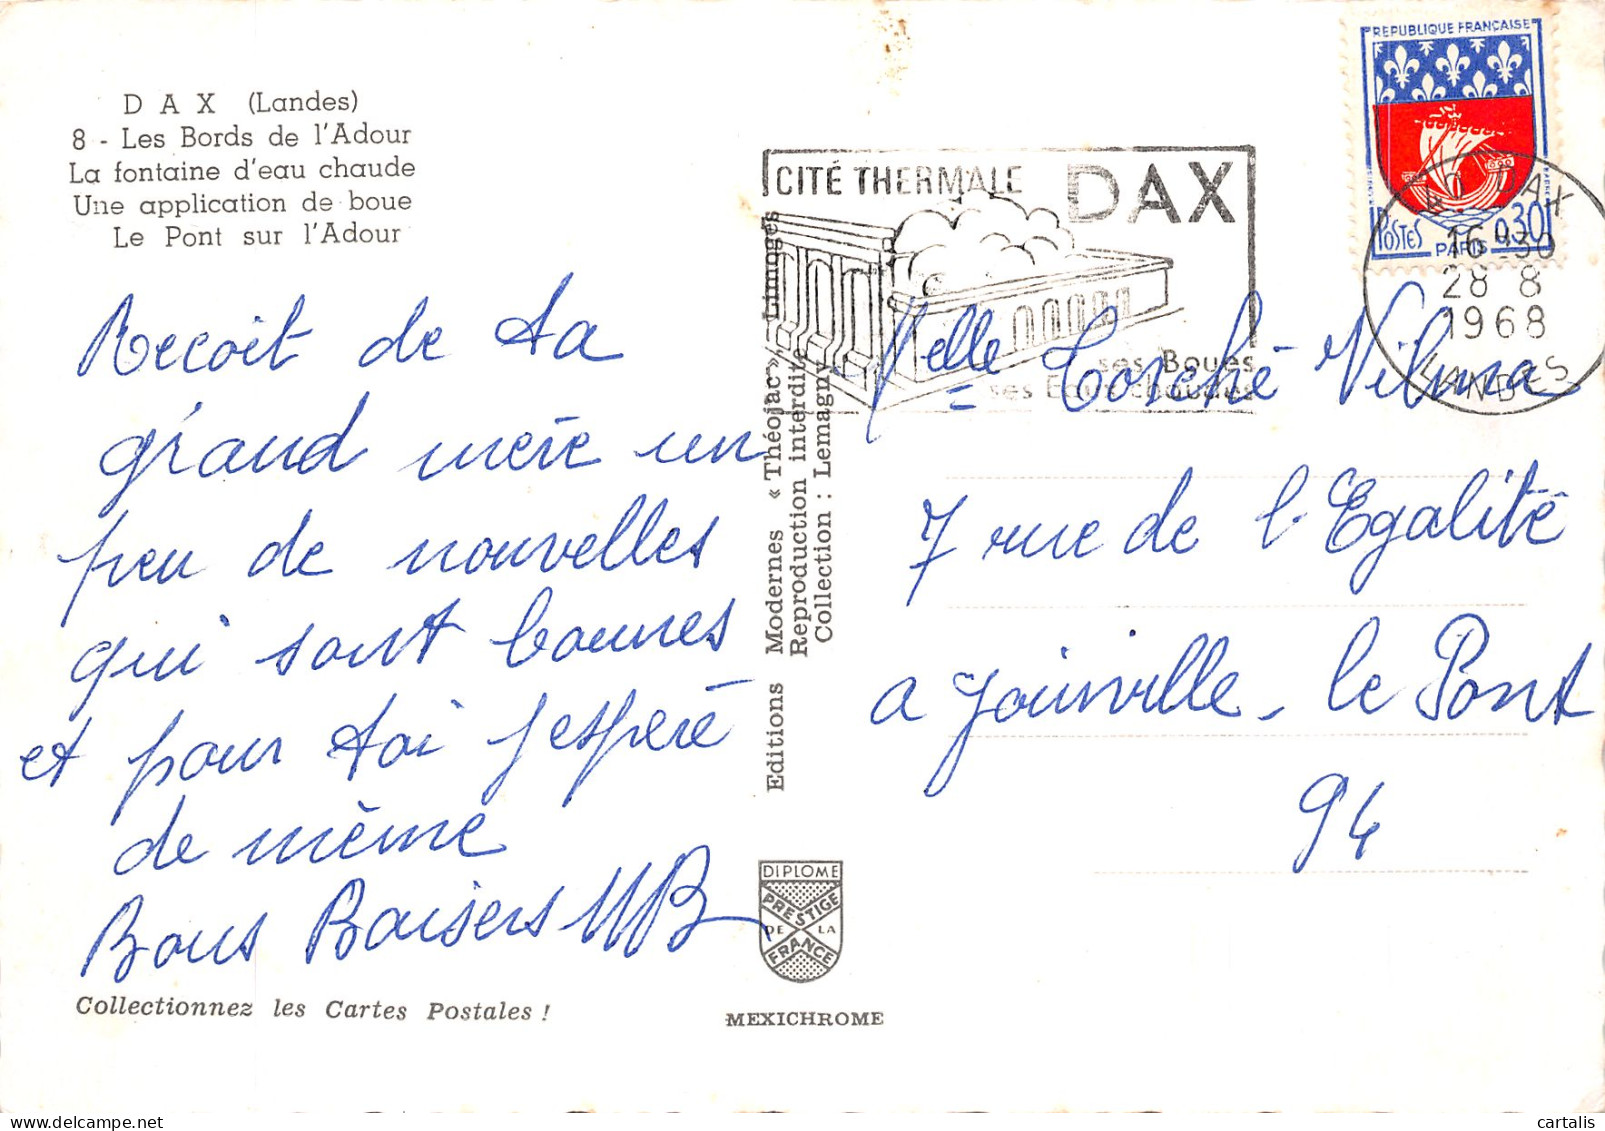 D A X (Landes)
8 - Les Bords de l'Adour
La fontaine d'eau chaude
Une application de boue
Le Pont sur l'Adour
Recoit de ta
grand mère un
peu de nouvelles
qui sont bonnes
et pour toi j'espère
de même
Bons Baisers MB
Collectionnez les Cartes Postales !
Editions Modernes « Théojac », Limoges
Reproduction interdite
Collection : Lemagny
DIPLOME
PRESTIGE
DE LA
FRANCE
MEXICHROME
CITÉ THERMALE DAX
ses Boues
ses Eaux chaudes
REPUBLIQUE FRANÇAISE
POSTES
PARIS
0,30
40 DAX
16 H30
28 8
1968
LANDES
Melle Torché Vilma
7 rue de l'Egalité
a Joinville-le Pont
94
cartalis